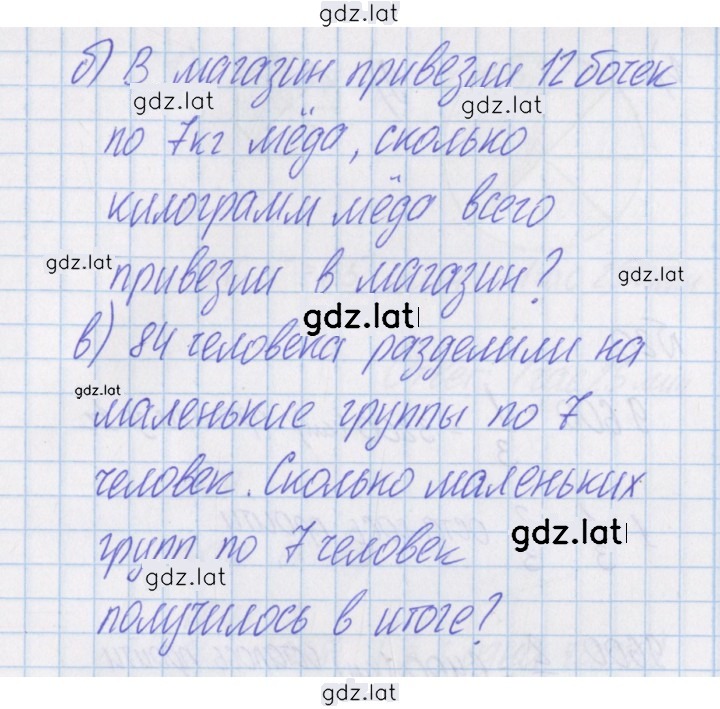 gdz.lat
б) В магазин привезли 12 бочек
gdz.lat gdz.lat
по 7кг мёда, сколько
килограмм мёда всего
gdz.lat привезли в магазин? gdz.lat
gdz.lat
в) 84 человека разделили на
gdz.lat
маленькие группы по 7
человек. Сколько маленьких
групп по 7 человек gdz.lat
gdz.lat
получилось в итоге?
gdz.lat